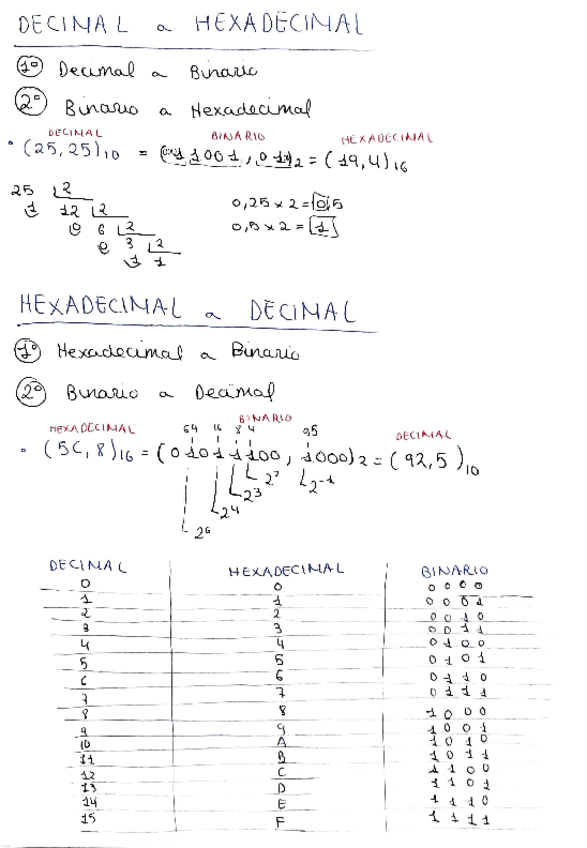 DECIMAL a HEXADECIMAL
1º Decimal a Binario
2º Binario a Hexadecimal
DECIMAL BINÁRIO HEXADECIMAL
• (25,25)10 = (0001 1001, 0100)2 = (19,4)16
25 |2
1 12 |2 0,25 x 2 = 0,5
0 6 |2 0,5 x 2 = 1
0 3 |2
1 1
HEXADECIMAL a DECIMAL
1º Hexadecimal a Binario
2º Binario a Decimal
HEXADECIMAL 64 16 8 4 BINARIO 0,5 DECIMAL
• (5C,8)16 = (01011100, 1000)2 = (92,5)10
2² 2-1
2³
2⁴
2⁶
DECIMAL HEXADECIMAL BINARIO
0 0 0 0 0 0
1 1 0 0 0 1
2 2 0 0 1 0
3 3 0 0 1 1
4 4 0 1 0 0
5 5 0 1 0 1
6 6 0 1 1 0
7 7 0 1 1 1
8 8 1 0 0 0
9 9 1 0 0 1
10 A 1 0 1 0
11 B 1 0 1 1
12 C 1 1 0 0
13 D 1 1 0 1
14 E 1 1 1 0
15 F 1 1 1 1